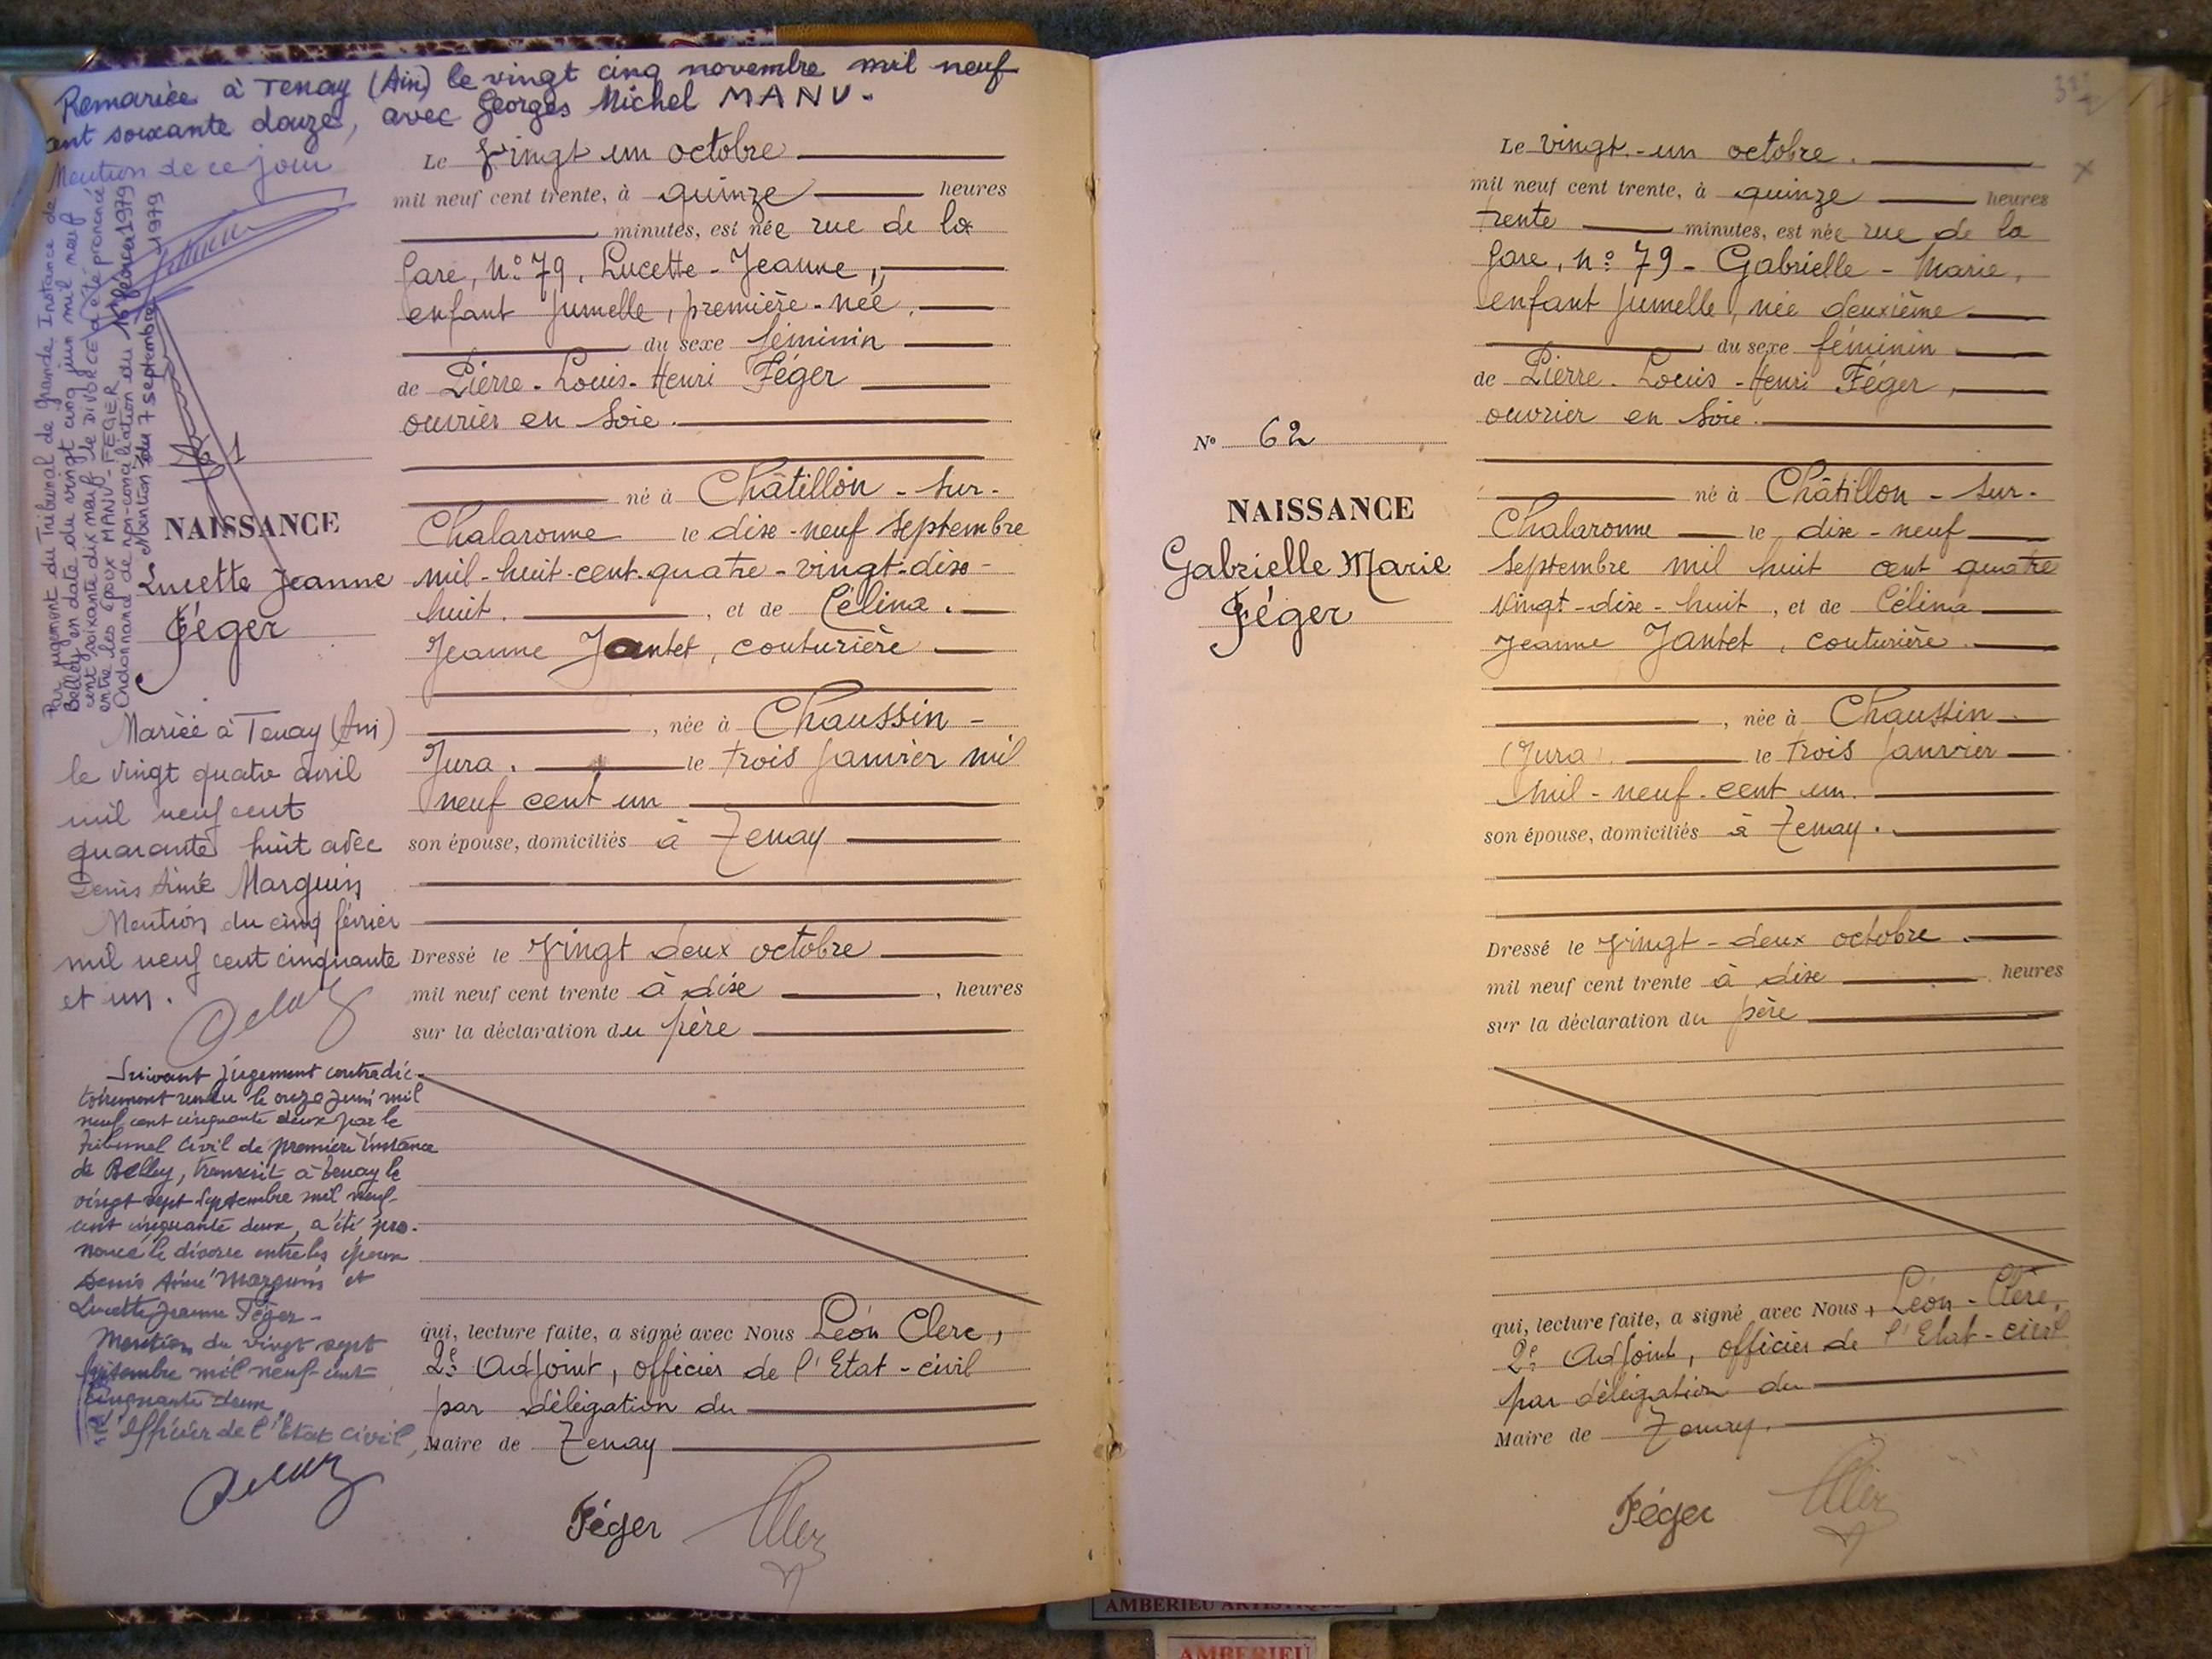 Remariée à Tenay (Ain) le vingt cinq novembre mil neuf
cent soixante douze, avec Georges Michel MANU.
Mention de ce jour
Par jugement du Tribunal de Grande Instance de
Belley en date du vingt cinq juin mil neuf
cent soixante dix neuf le DIVORCE a été prononcé
entre les époux MANU - FEGER
Ordonnance de non-conciliation du 16 février 1979
Mention du 7 septembre 1979
61
NAISSANCE
Lucette Jeanne
Féger
Mariée à Tenay (Ain)
le vingt quatre avril
mil neuf cent
quarante huit avec
Denis Aimé Marguin
Mention du cinq février
mil neuf cent cinquante
et un.
Suivant jugement contradic-
toirement rendu le onze juin mil
neuf cent cinquante deux par le
tribunal civil de première instance
de Belley, transcrit à Tenay le
vingt sept septembre mil neuf
cent cinquante deux, a été pro-
noncé le divorce entre les époux
Denis Aimé Marguin et
Lucette Jeanne Féger -
Mention du vingt sept
septembre mil neuf cent
cinquante deux
l'officier de l'Etat civil,
Le Vingt un octobre
mil neuf cent trente, à quinze heures
minutes, est née rue de la
Gare, N° 79, Lucette - Jeanne,
enfant jumelle, première-née,
du sexe féminin
de Pierre - Louis - Henri Féger
ouvrier en soie.
né à Châtillon - sur -
Chalaronne le dix-neuf septembre
mil-huit-cent-quatre-vingt-dix-
huit, et de Célina.
Jeanne Jantet, couturière
, née à Chaussin -
Jura. le trois janvier mil
neuf cent un
son épouse, domiciliés à Tenay
Dressé le Vingt deux octobre
mil neuf cent trente à dix, heures
sur la déclaration du père
qui, lecture faite, a signé avec Nous Léon Clerc,
2e Adjoint, officier de l'Etat-civil
par délégation du
Maire de Tenay
Féger
N° 62
NAISSANCE
Gabrielle Marie
Féger
Le vingt-un octobre.
mil neuf cent trente, à quinze heures
trente minutes, est née rue de la
Gare, N° 79 - Gabrielle - Marie,
enfant jumelle, née deuxième
du sexe féminin
de Pierre - Louis - Henri Féger,
ouvrier en soie.
né à Châtillon - sur -
Chalaronne le dix-neuf
septembre mil huit cent quatre
vingt-dix-huit, et de Célina
Jeanne Jantet, couturière.
, née à Chaussin
(Jura). le trois janvier
mil-neuf-cent un.
son épouse, domiciliés à Tenay.
Dressé le Vingt-deux octobre.
mil neuf cent trente à dix heures
sur la déclaration du père
qui, lecture faite, a signé avec Nous, Léon - Clerc,
2e Adjoint, officier de l'Etat-civil
par délégation du
Maire de Tenay.
Féger
AMBERIEU ARTISTIQUE
AMBERIEU